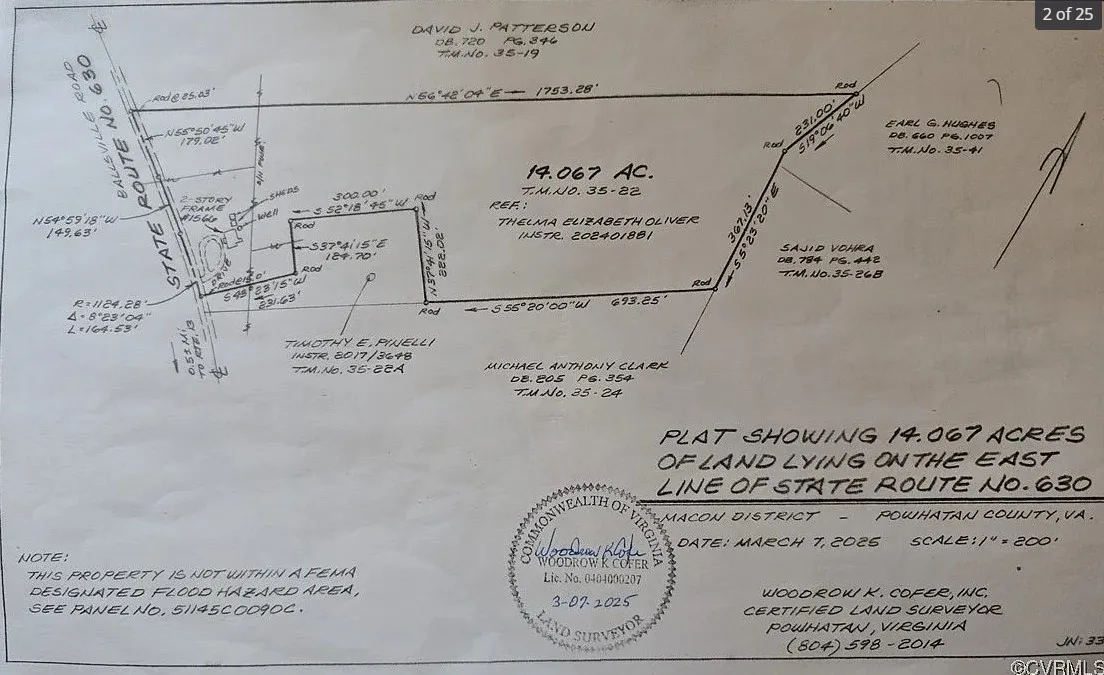 2 of 25
DAVID J. PATTERSON
DB. 720 PG. 346
T.M. No. 35-19
BALLSVILLE ROAD
STATE ROUTE No. 630
Rod @ 25.03'
N 56°42'04"E 1753.28'
Rod
231.00'
S19°06'40"W
EARL G. HUGHES
DB. 660 PG. 1007
T.M. No. 35-41
N55°50'45"W
179.02'
O/H POWER
Rod
14.067 AC.
T.M. NO. 35-22
REF.:
THELMA ELIZABETH OLIVER
INSTR. 202401881
2-STORY
FRAME
#1566
SHEDS
Well
DRIVE
300.00'
S 52°18'45"W
Rod
Rod
N54°59'18"W
149.63'
S37°41'15"E
124.70'
N37°41'15"W
222.02'
367.13'
S5°23'20"E
SAJID VOHRA
DB. 784 PG. 442
T.M. No. 35-26B
Rod
S 55°20'00"W 693.25'
Rod
Rod
231.63'
R=1124.28'
Δ=8°23'04"
L=164.53'
0.53 Mi.
TO RTE. 13
TIMOTHY E. PINELLI
INSTR. 2017/3648
T.M. No. 35-22A
MICHAEL ANTHONY CLARK
DB. 205 PG. 354
T.M. No. 35-24
PLAT SHOWING 14.067 ACRES
OF LAND LYING ON THE EAST
LINE OF STATE ROUTE NO. 630
MACON DISTRICT - POWHATAN COUNTY, VA.
DATE: MARCH 7, 2025 SCALE: 1" = 200'
COMMONWEALTH OF VIRGINIA
Woodrow K Cofer
WOODROW K COFER
Lic. No. 0404000207
3-07-2025
LAND SURVEYOR
NOTE:
THIS PROPERTY IS NOT WITHIN A FEMA
DESIGNATED FLOOD HAZARD AREA,
SEE PANEL NO. 51145C0090C.
WOODROW K. COFER, INC.
CERTIFIED LAND SURVEYOR
POWHATAN, VIRGINIA
(804) 598-2014
JN: 33
©CVRMLS